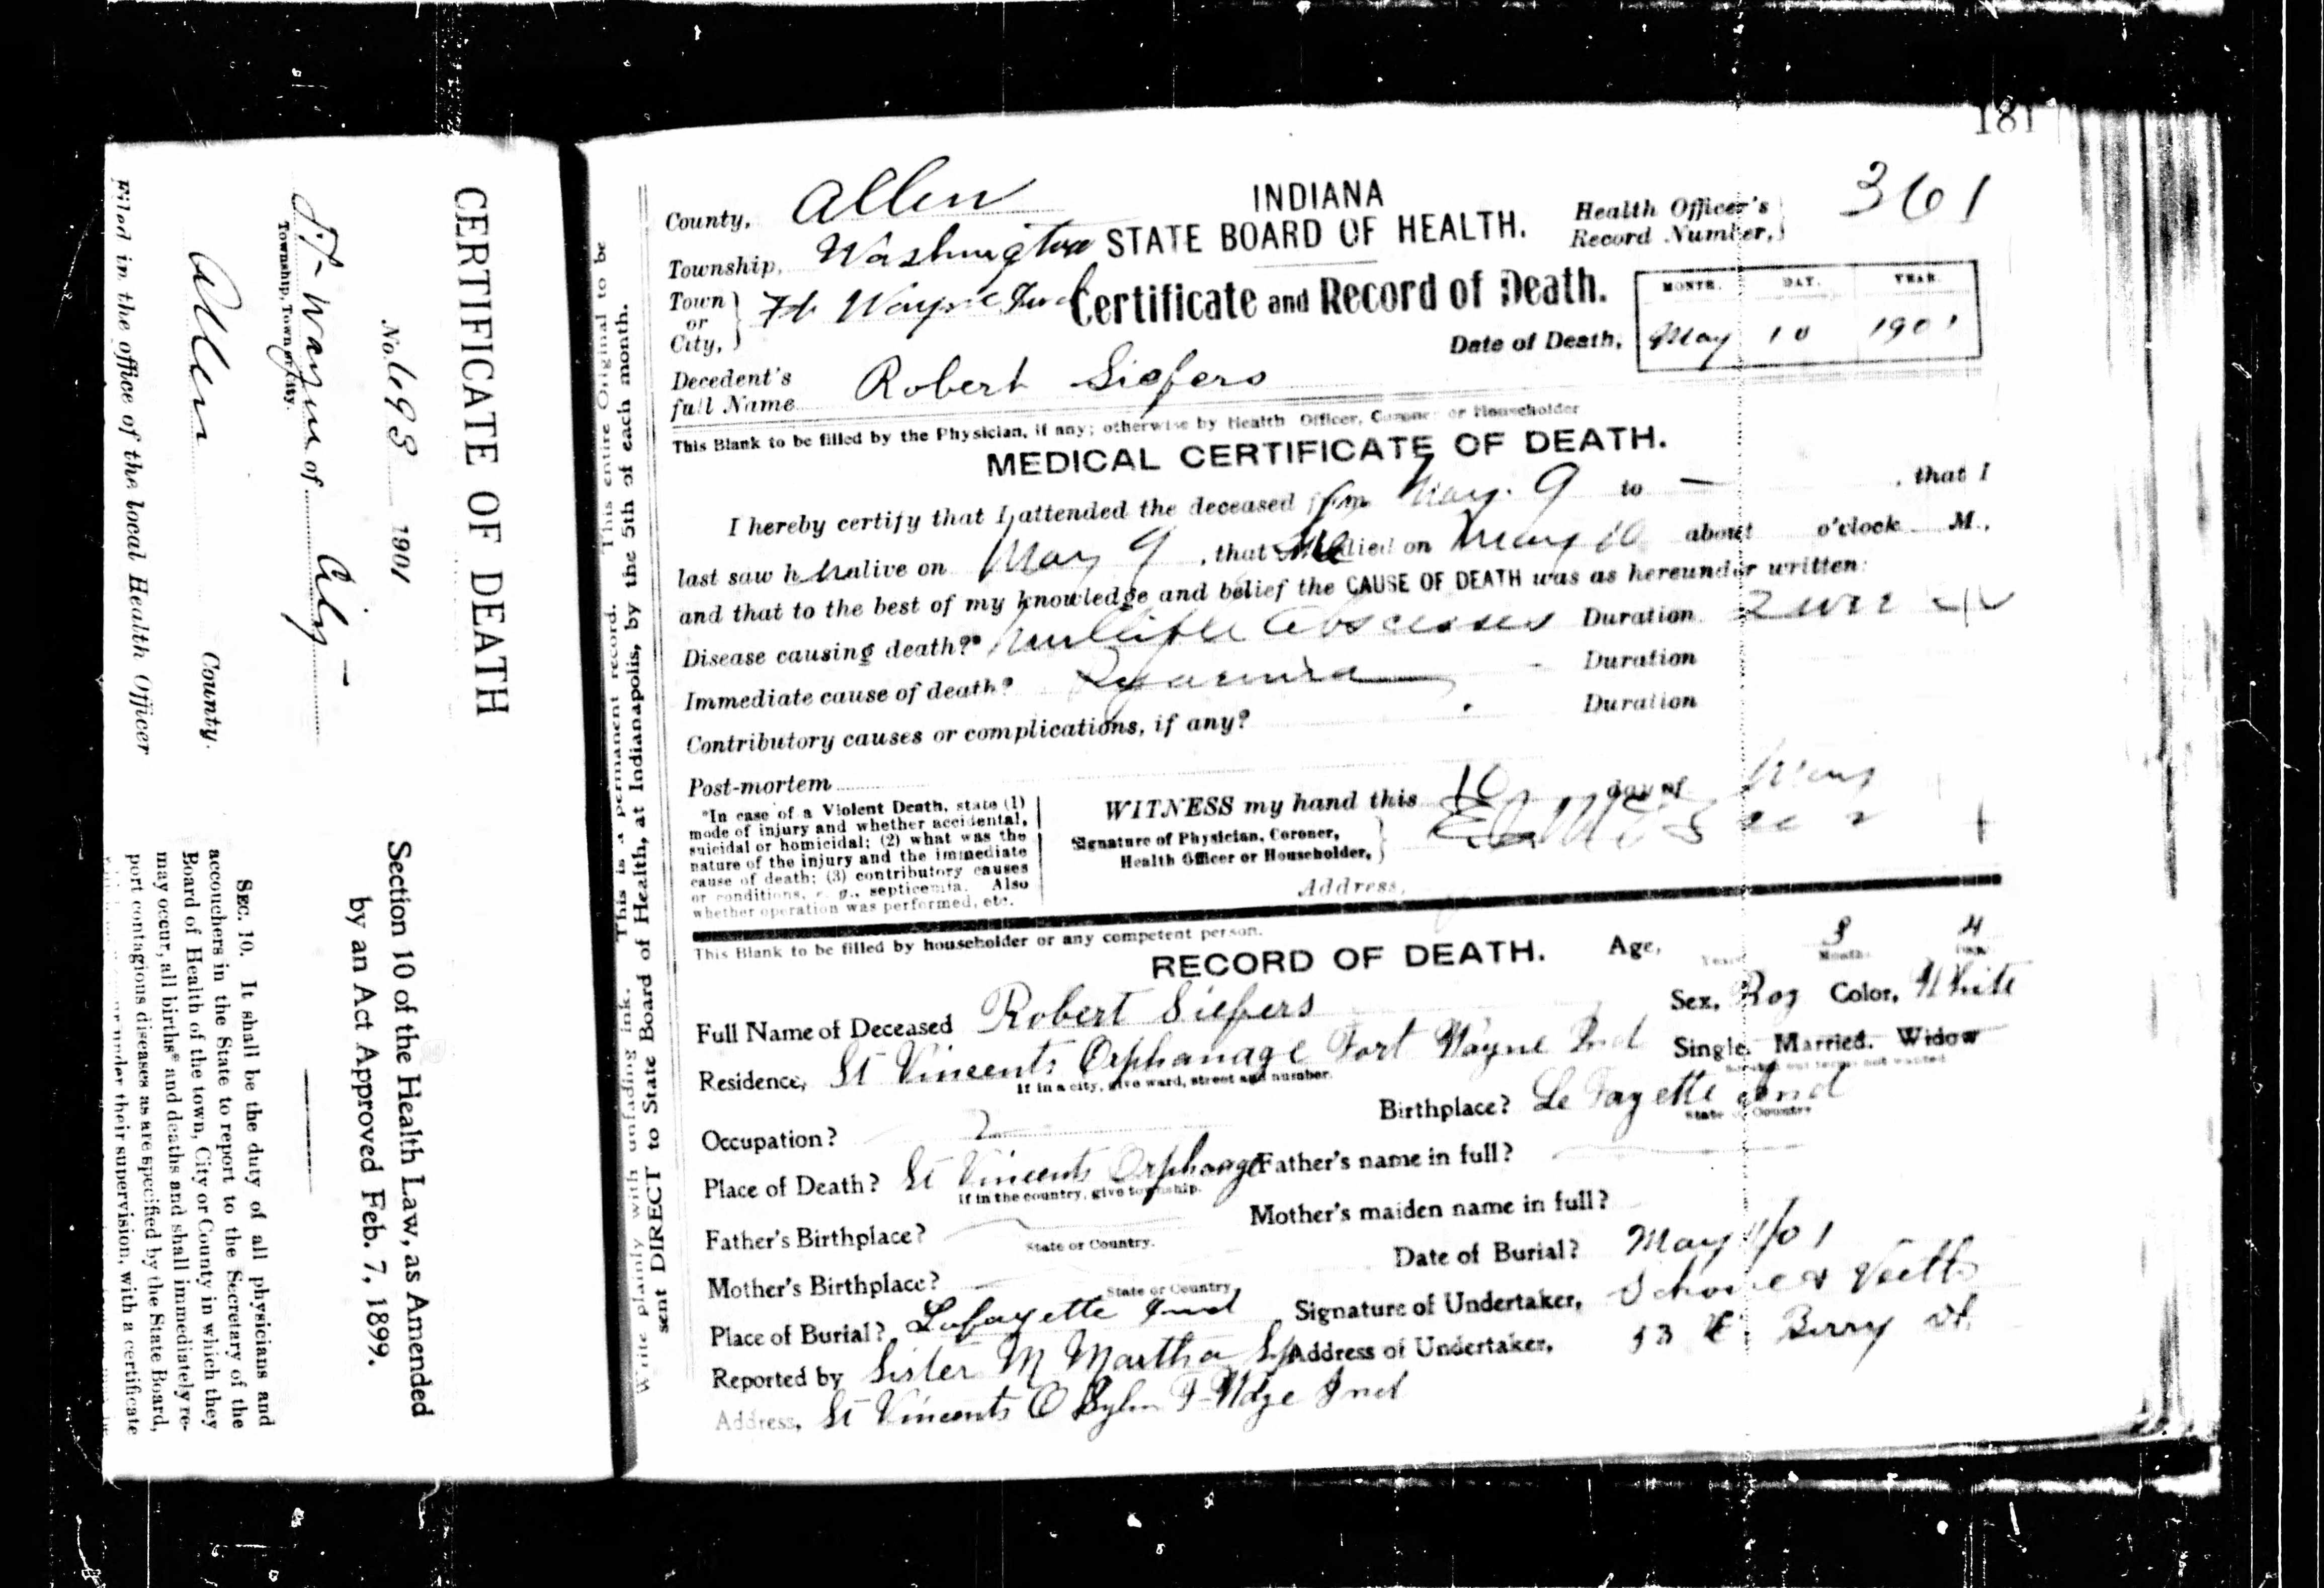 CERTIFICATE OF DEATH
No. 1901
Ft Wayne of City
Township, Town or City.
Allen County.
Filed in the office of the local Health Officer
Section 10 of the Health Law, as Amended
by an Act Approved Feb. 7, 1899.
SEC. 10. It shall be the duty of all physicians and
accouchers in the State to report to the Secretary of the
Board of Health of the town, City or County in which they
may occur, all births* and deaths and shall immediately re-
port contagious diseases as are specified by the State Board,
under their supervision, with a certificate
Write plainly with unfading ink. This is a permanent record. This entire Original to be
sent DIRECT to State Board of Health, at Indianapolis, by the 5th of each month.
181
County, Allen
INDIANA
STATE BOARD OF HEALTH.
Health Officer's
Record Number, 361
Township, Washington
Town or City, Ft Wayne Ind
Certificate and Record of Death.
MONTH. DAY. YEAR.
Date of Death, May 10 1901
Decedent's
full Name Robert Siefers
This Blank to be filled by the Physician, if any; otherwise by Health Officer, Coroner or Householder
MEDICAL CERTIFICATE OF DEATH.
I hereby certify that I attended the deceased from May. 9 to — , that I
last saw him alive on May 9 , that he died on May 10 about o'clock M.,
and that to the best of my knowledge and belief the CAUSE OF DEATH was as hereunder written:
Disease causing death?* Multiple Abscesses Duration 2
Immediate cause of death? Pyaemia Duration
Contributory causes or complications, if any? Duration
Post-mortem
*In case of a Violent Death, state (1)
mode of injury and whether accidental,
suicidal or homicidal; (2) what was the
nature of the injury and the immediate
cause of death; (3) contributory causes
or conditions, e. g., septicemia. Also
whether operation was performed, etc.
WITNESS my hand this 10 day of May
Signature of Physician, Coroner,
Health Officer or Householder,
Address,
This Blank to be filled by householder or any competent person.
RECORD OF DEATH.
Age, Years Months 4 Days
Full Name of Deceased Robert Siefers
Sex, Boy Color, White
Residence, St Vincents Orphanage Fort Wayne Ind
If in a city, give ward, street and number.
Single. Married. Widow
Scratch out terms not wanted
Occupation?
Birthplace? La Fayette Ind
State or Country
Place of Death? St Vincents Orphanage
If in the country, give township.
Father's name in full?
Father's Birthplace?
State or Country.
Mother's maiden name in full?
Mother's Birthplace?
State or Country
Date of Burial? May 11/01
Place of Burial? Lafayette Ind
Signature of Undertaker,
Reported by Sister M Martha
Address of Undertaker, 53 E. Berry St.
Address, St Vincents O Ind